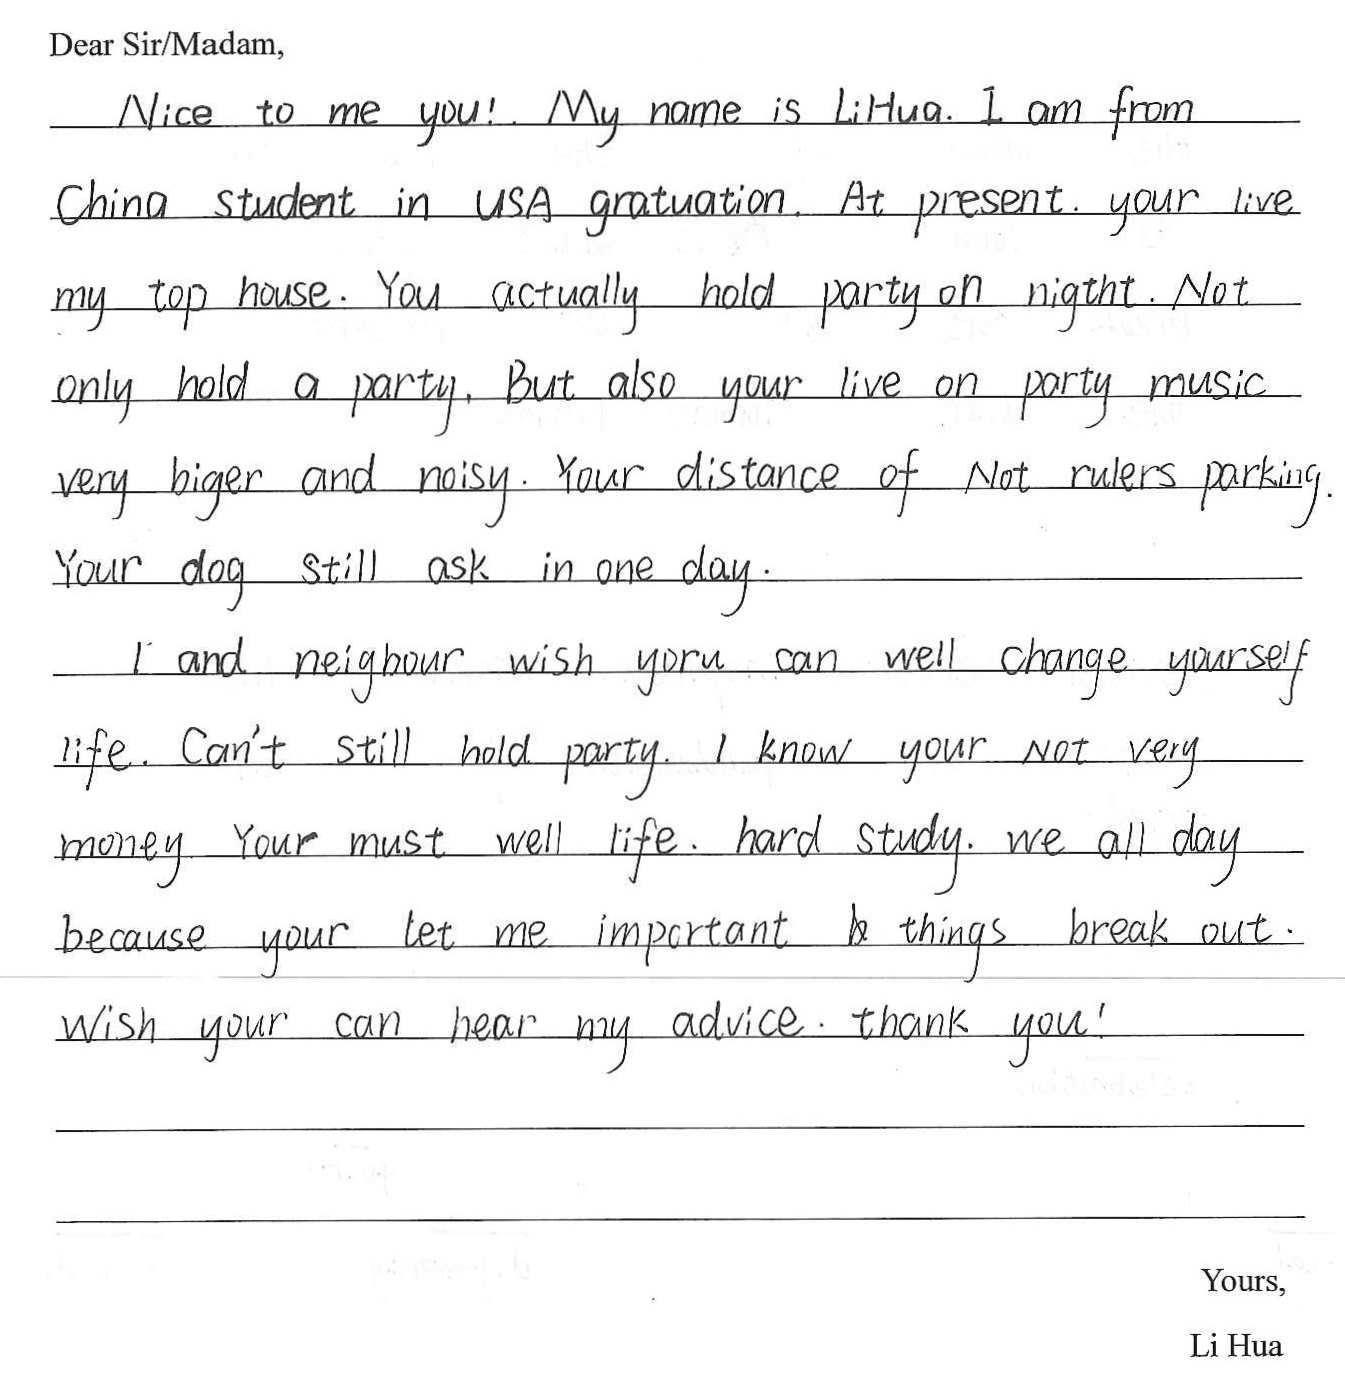 Dear Sir/Madam,
Nice to me you! My name is LiHua. I am from
China student in USA gratuation. At present. your live
my top house. You actually hold party on nigtht. Not
only hold a party. But also your live on party music
very biger and noisy. Your distance of Not rulers parking.
Your dog still ask in one day.
I and neighour wish yoru can well change yourself
life. Can't still hold party. I know your NOT very
money Your must well life. hard study. we all day
because your let me important things break out.
Wish your can hear my advice. thank you!
Yours,
Li Hua